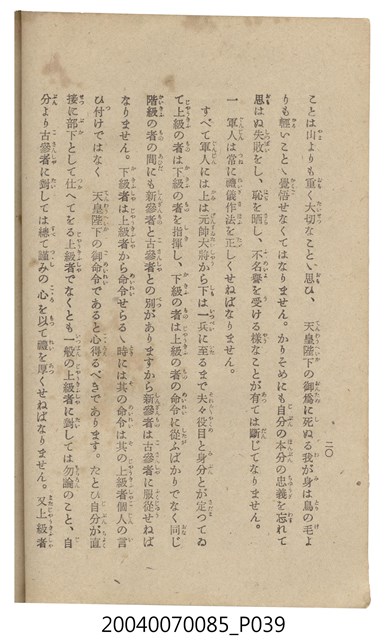 二〇
ことは山よりも重く大切なことゝ思ひ、　天皇陛下の御爲に死ぬる我が身は鳥の毛よ
りも輕いことゝ覺悟せなくてはなりません。かりそめにも自分の本分の忠義を忘れて
思はぬ失敗をし、恥を晒し、不名譽を受ける樣なことが有ては斷じてなりません。
一　軍人は常に禮儀作法を正しくせねばなりません。
すべて軍人には上は元帥大將から下は一兵に至るまで夫々役目と身分とが定つてゐ
て上級の者は下級の者を指揮し、下級の者は上級の者の命令に從ふばかりでなく同じ
階級の者の間にも新參者と古參者との別がありますから新參者は古參者に服從せねば
なりません。下級者は上級者から命令せらるゝ時には其の命令は其の上級者個人の言
ひ付けではなく、　天皇陛下の御命令であると心得るべきであります。たとひ自分が直
接に部下として仕へてをる上級者でなくとも一般の上級者に對しては勿論のこと、自
分より古參者に對しては總て謹みの心を以て禮を厚くせねばなりません。又上級者
20040070085_P039